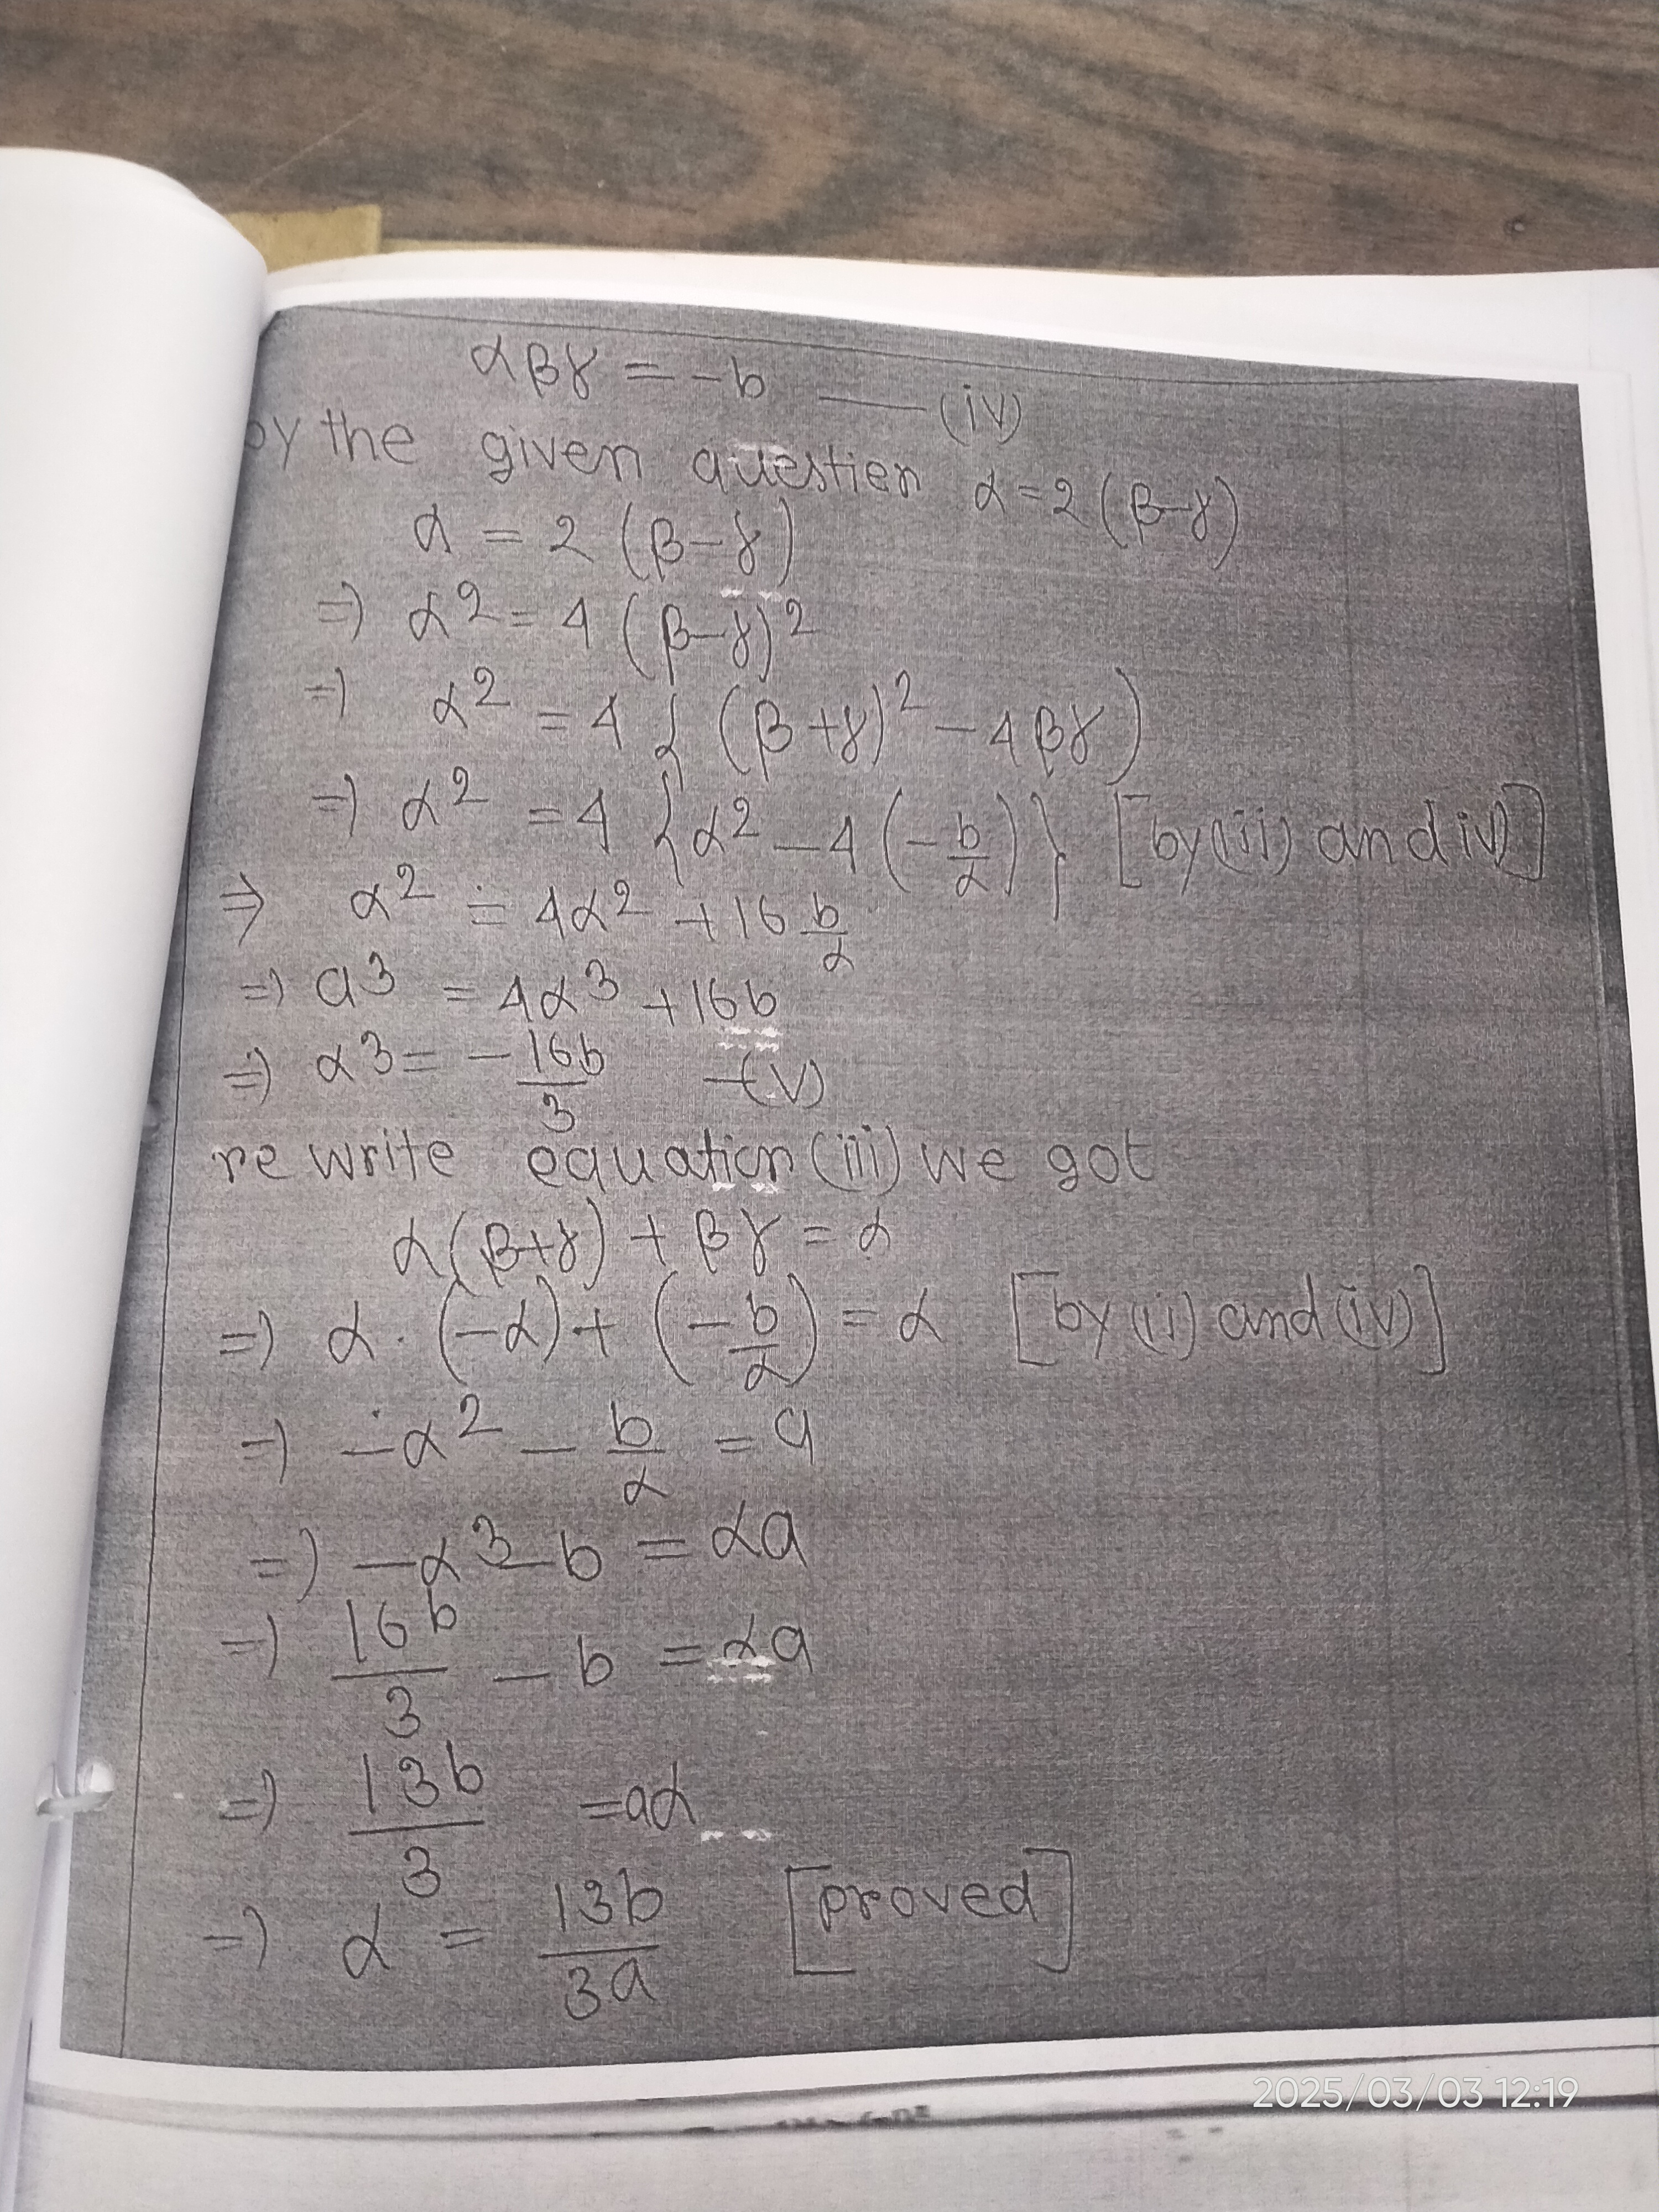 αβγ = -b —— (iv)
by the given question α = 2 (β-γ)
α = 2 (β-γ)
=> α² = 4 (β-γ)²
=> α² = 4 { (β+γ)² - 4βγ )
=> α² = 4 { α² - 4 (-b/α) } [by (iii) and iv)]
=> α² = 4α² + 16 b/α
=> a³ = 4α³ + 16b
=> α³ = - 16b/3 -(v)
re write equation (iii) we got
α(β+γ) + βγ = α
=> α · (-α) + (-b/α) = α [by (ii) and (iv)]
=> -α² - b/α = a
=> -α³ - b = αa
=> 16b/3 - b = αa
=> 13b/3 = aα
=> α = 13b/3a [proved]
2025/03/03 12:19